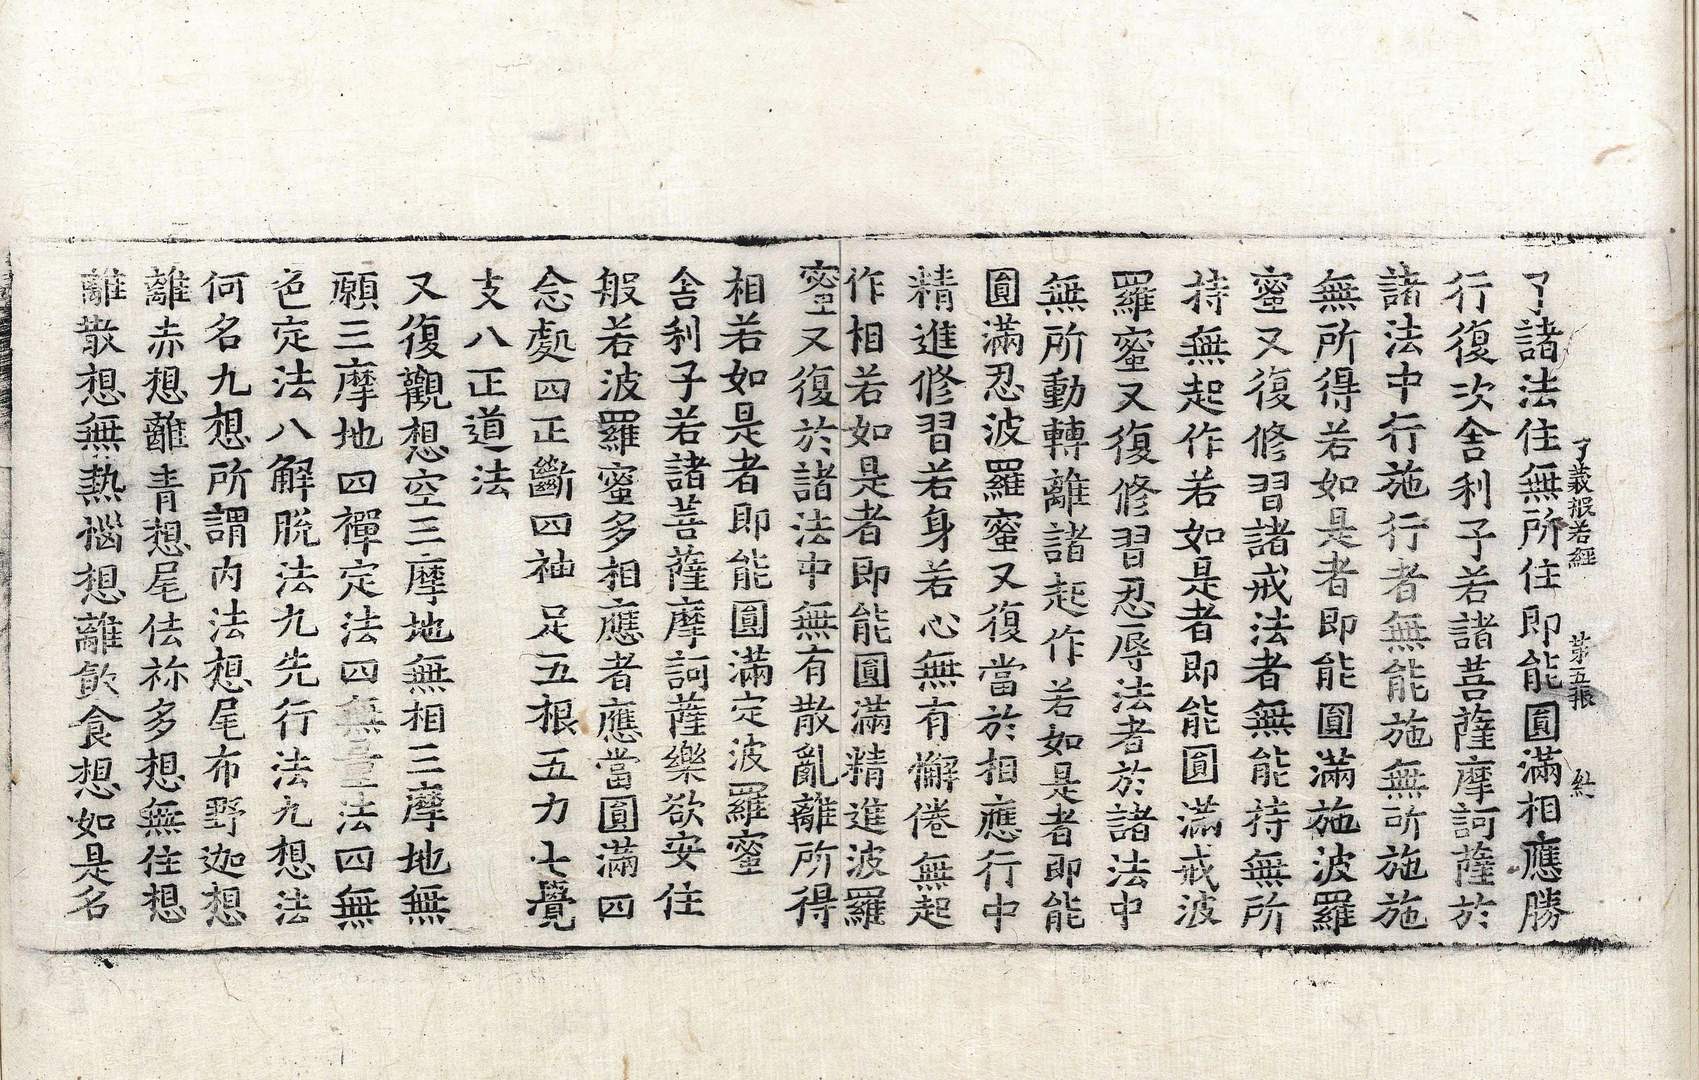 了義般若經 第五張 紅
了諸法住無所住即能圓滿相應勝
行復次舍利子若諸菩薩摩訶薩於
諸法中行施行者無能施無所施施
無所得若如是者即能圓滿施波羅
蜜又復修習諸戒法者無能持無所
持無起作若如是者即能圓滿戒波
羅蜜又復修習忍辱法者於諸法中
無所動轉離諸起作若如是者即能
圓滿忍波羅蜜又復當於相應行中
精進修習若身若心無有懈倦無起
作相若如是者即能圓滿精進波羅
蜜又復於諸法中無有散亂離所得
相若如是者即能圓滿定波羅蜜
舍利子若諸菩薩摩訶薩樂欲安住
般若波羅蜜多相應者應當圓滿四
念處四正斷四神足五根五力七覺
支八正道法
又復觀想空三摩地無相三摩地無
願三摩地四禪定法四無量法四無
色定法八解脫法九先行法九想法
何名九想所謂內法想尾布野迦想
離赤想離青想尾佉祢多想無住想
離散想無熱惱想離飲食想如是名